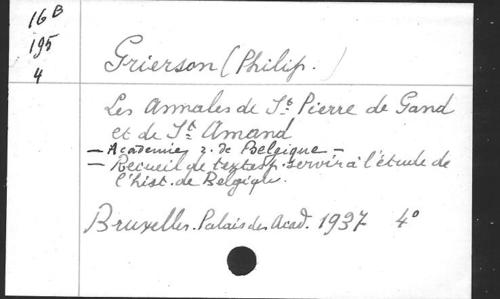 16B
195
4
Grierson (Philip.)
Les Annales de St Pierre de Gand
et de St Amand
— Academie r. de Belgique —
— Recueil de textes p. servir à l'étude de
l'hist. de Belgique.
Bruxelles. Palais des Acad. 1937 4°